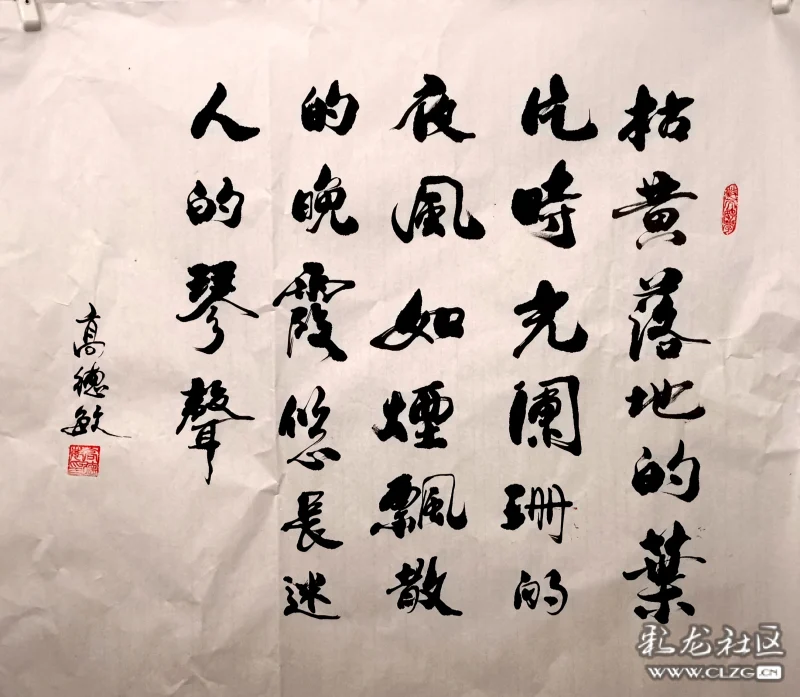 枯黄落地的葉
片時光闌珊的
夜風如煙飄散
的晚霞悠長迷
人的琴聲
高德敏
彩龙社区
WWW.CLZG.CN